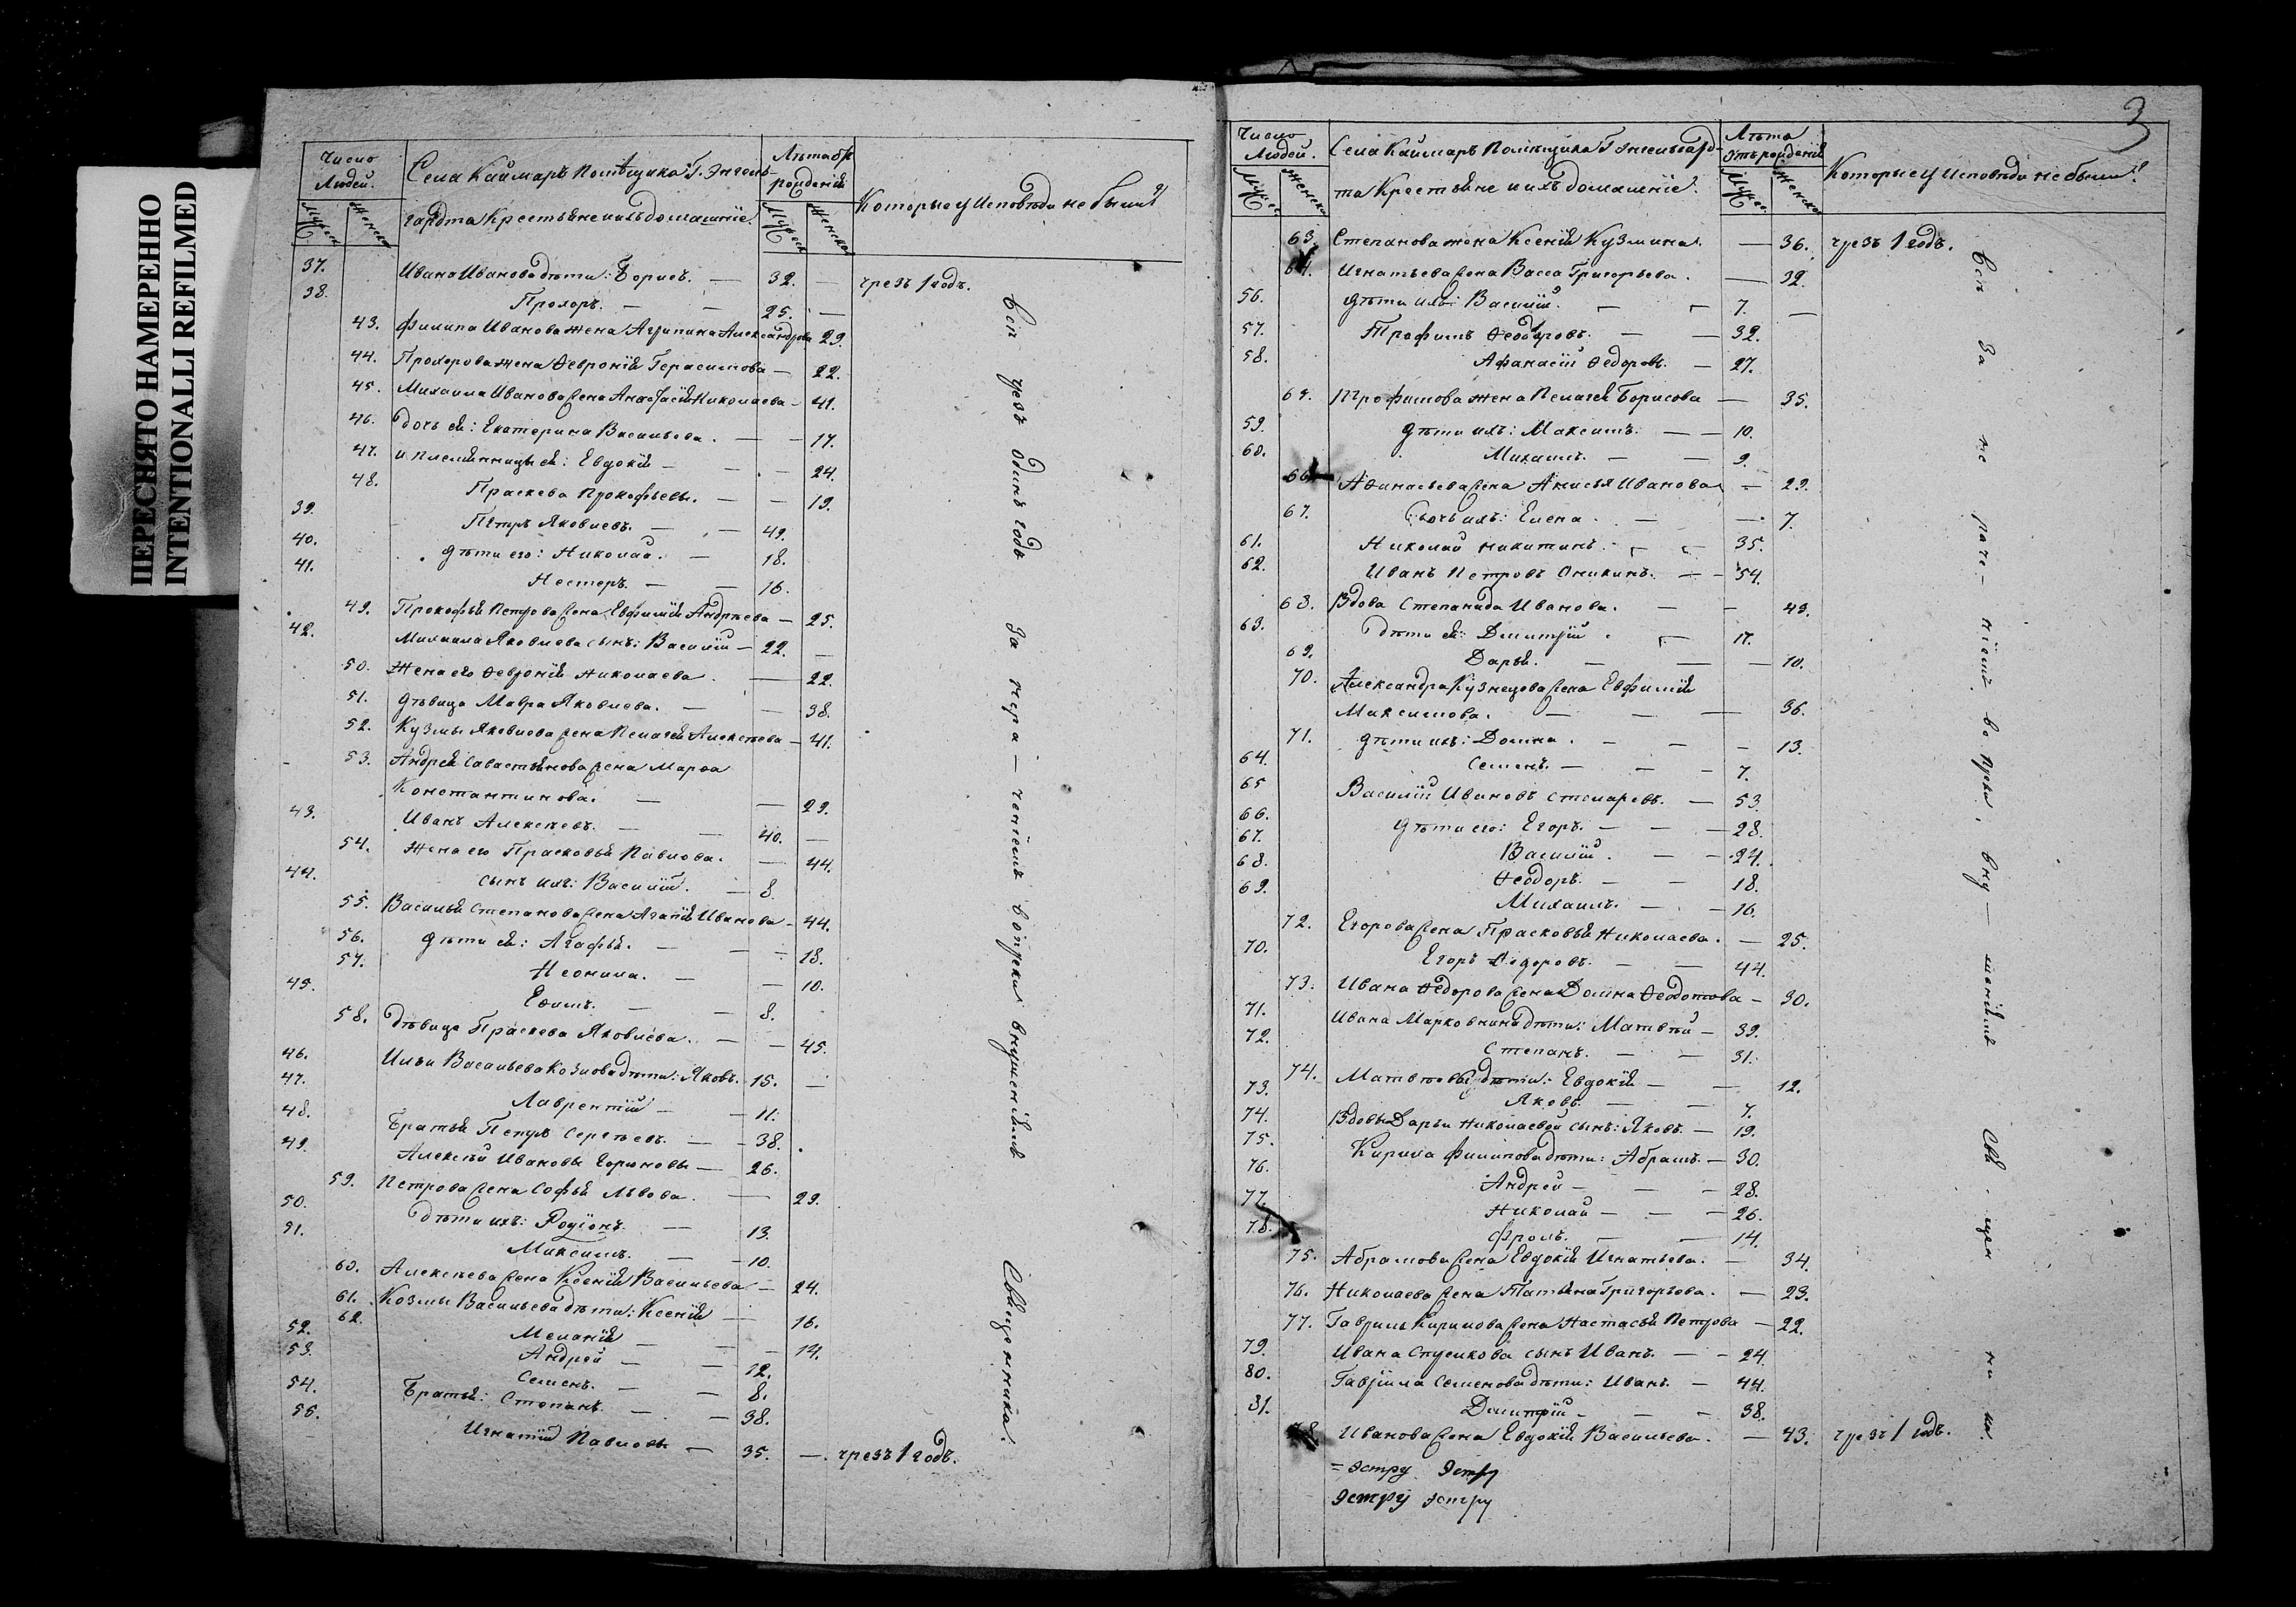 ПЕРЕСНЯТО НАМЕРЕННО
INTENTIONALLI REFILMED
Число Людей.
Мужес Женско
Села Каймаръ Помѣщика Г. Энгель-
гардта Крестьяне и ихъ домашніе.
Лѣта отъ рожденія
Мужеск Женско
Которые у Исповѣди не были
37. Ивана Иванова дѣти: Борисъ. — 32. — чрезъ 1 годъ.
38. Прохоръ. — — 25. —
43. Филипа Иванова жена Агрипина Александрова 29.
44. Прохорова жена Ѳевронія Герасимова — 22.
45. Михаила Иванова жена Анастасія Николаева — 41.
46. Дочь ея: Екатерина Васильева. — — 17.
47. и племянницы ея: Евдокія — — 24.
48. Праскева Прокофьевы. — — 19.
39. Петръ Яковлевъ. — — 49.
40. дѣти его: Николай. — 18.
41. Нестеръ. — — 16.
49. Прокофья Петрова жена Евфимія Андреева — 25.
42. Михаила Яковлева сынъ: Василій — 22. —
50. Жена его Ѳевронія Николаева. — 22.
51. Дѣвица Мавра Яковлева. — — 38.
52. Кузмы Яковлева жена Пелагея Алексѣева — 41.
53. Андрея Савастьянова жена Марѳа
Константинова. — — 29.
43. Иванъ Алексѣевъ. — — 40. —
54. Жена его Прасковья Павлова. — 44.
44. сынъ ихъ: Василій. — 8.
55. Василья Степанова жена Агапія Иванова — 44.
56. дѣти ея: Агафья. — — 18.
57. Неонила. — — 10.
45. Ефимъ. — — 8.
58. Дѣвица Праскева Яковлева. — — 45.
46. Ильи Васильева Козлова дѣти: Яковъ. 15. —
47. Лаврентій — — 11.
48. Братья Петръ Сергѣевъ. — — 38.
49. Алексѣй Ивановы Горюновы — 26.
59. Петрова жена Софья Львова. — 29.
50. дѣти ихъ: Родіонъ. — 13.
51. Максимъ. — — 10.
60. Алексѣева жена Ксенія Васильева — 24.
61. Козмы Васильева дѣти: Ксенія — 16.
62. Меланія — — — 14.
52. Андрей — — 12.
53. Семенъ. — — 8.
54. Братья: Степанъ. — — 38.
55. Игнатій Павловы — 35. — чрезъ 1 годъ.
Всѣ чрезъ одинъ годъ за нера — ченіемъ вопреки внушеніямъ Священника.
3
Число Людей.
Мужес Женско
Села Каймаръ Помѣщика Г Энгельгард-
та Крестьяне и ихъ домашніе.
Лѣта Отъ рожденія
Мужес. Женско
Которые у Исповѣди не были.
63. Степанова жена Ксенія Кузмина. — 36. чрезъ 1 годъ.
64. Игнатьева жена Васса Григорьева. — 32.
56. дѣти ихъ: Василій. — — 7. —
57. Трофимъ Ѳеодоровъ. — — 32.
58. Афанасій Ѳедоровъ. — 27.
Трофимова жена Пелагея Борисова — 35.
59. дѣти ихъ: Максимъ. — — 10.
60. Михаилъ. — — 9.
66. Аѳанасьева жена Анисья Иванова — 29.
67. дочь ихъ: Елена. — — 7.
61. Николай Никитинъ. — — 35.
62. Иванъ Петровъ Оникинъ. — — 54.
68. Вдова Степанида Иванова. — — 43.
63. дѣти ея: Дмитрій. — 17.
69. Дарья. — — — 10.
70. Александра Кузнецова жена Евфимія
Максимова. — — — 36.
71. дѣти ихъ: Домна. — — — 13.
64. Семенъ. — — — 7.
65 Василій Ивановъ Столяровъ. — 53.
66. дѣти его: Егоръ. — — — 28.
67. Василій. — — 24.
68. Ѳеодоръ. — — 18.
69. Михаилъ. — — 16.
72. Егорова жена Прасковья Николаева. — 25.
70. Егоръ Ѳедоровъ. — — 44.
73. Ивана Ѳедорова жена Домна Ѳеодотова — 30.
71. Ивана Марковнина дѣти: Матвѣй — 39.
72. Степанъ. — — 31.
74. Матвѣевы дѣти: Евдокія — — 12.
73. Яковъ. — — 7.
74. Вдовы Дарьи Николаевой сынъ: Яковъ. — 19.
75. Кирила Филипова дѣти: Абрамъ. — 30.
76. Андрей — — — 28.
77. Николай — — — 26.
78. Фролъ. — — 14.
75. Абрамова жена Евдокія Игнатьева. — 34.
76. Николаева жена Татьяна Григорьева. — 23.
77. Гаврилы Кирилова жена Настасья Петрова — 22.
79. Ивана Ступикова сынъ Иванъ. — — 24.
80. Гаврила Семенова дѣти: Иванъ. — 44.
81. Дмитрій — — — 38.
78. Иванова жена Евдокія Васильева. — 43. чрезъ 1 годъ.
Всѣ За не раче- ніемъ во преки. вну — шеніямъ Свя. щен ни ка.